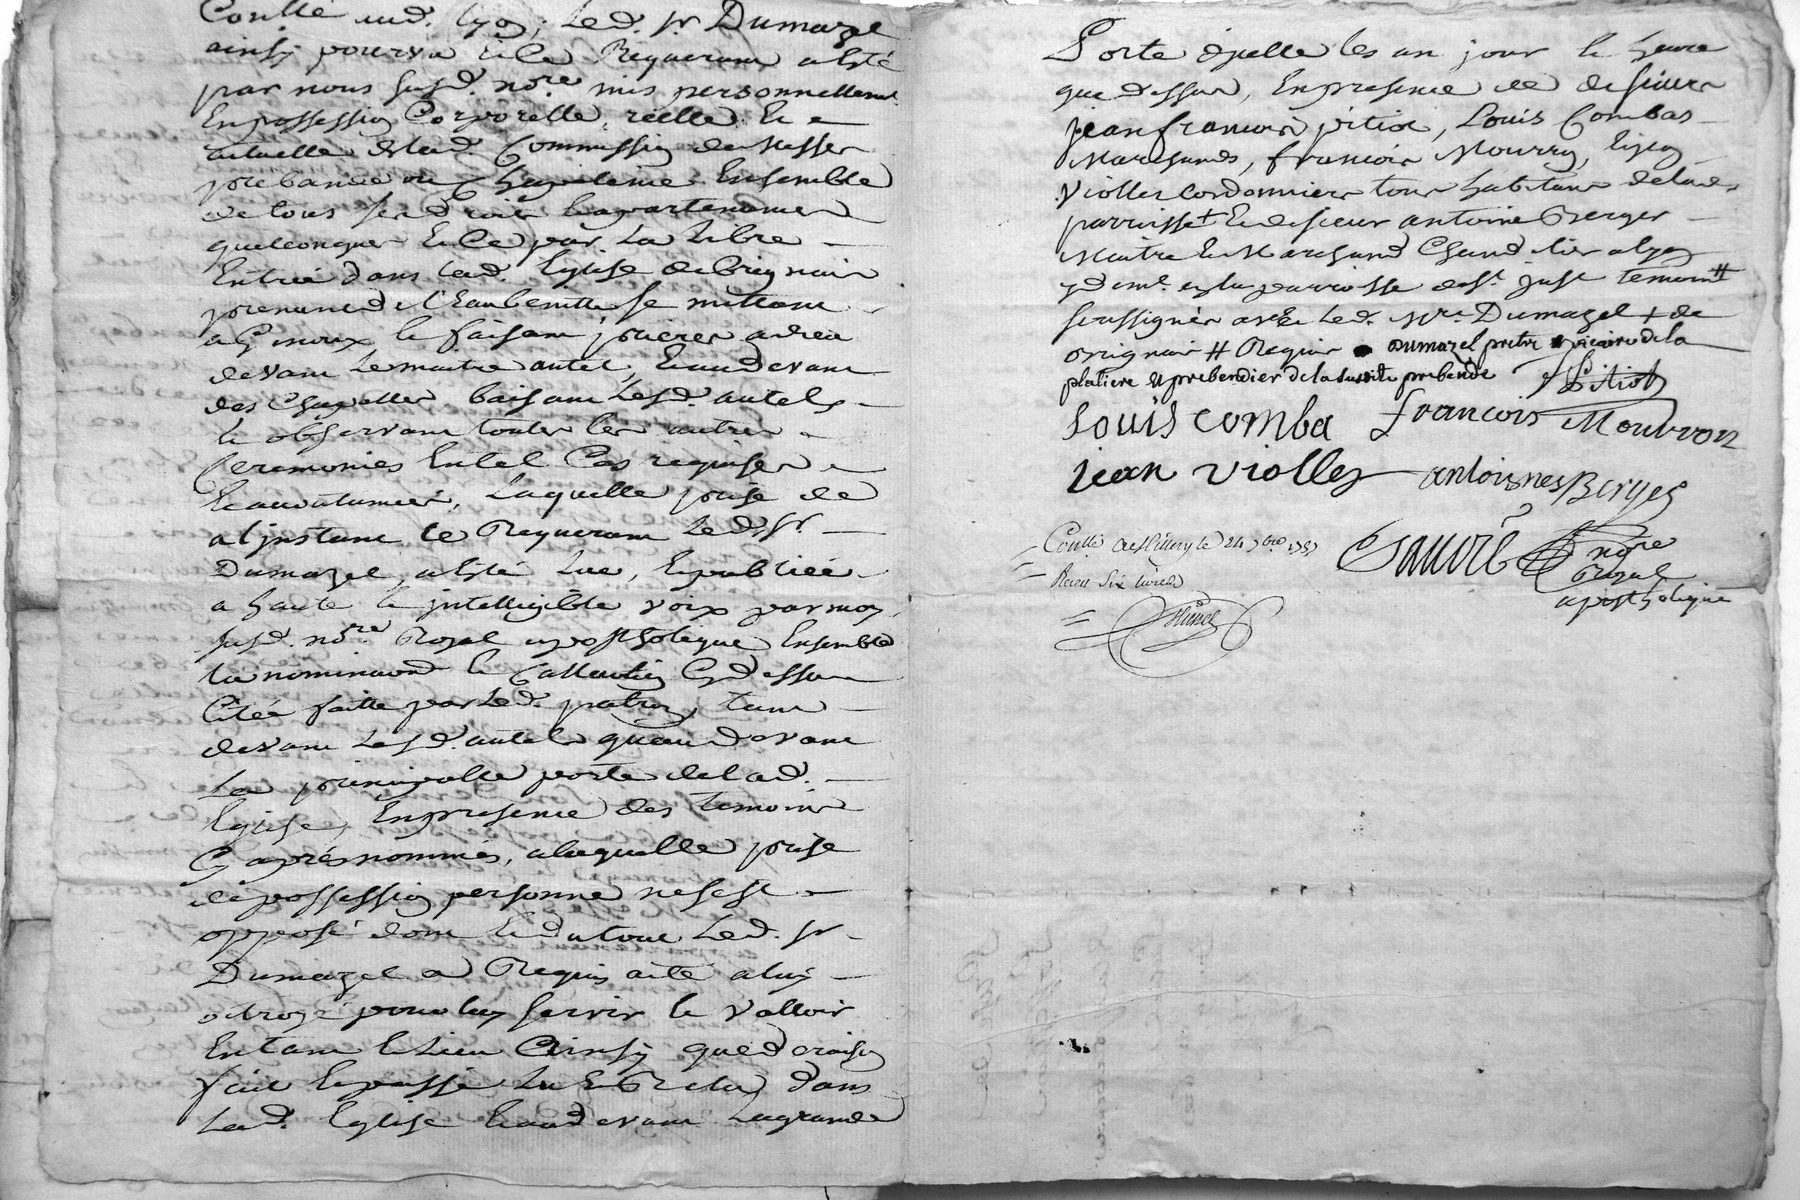 Conllé aud. Lyon, Led. sr. Dumazel
ainsy pourvu Et Ce Requerant a Esté
par nous susd. nore. mis personnellemt.
En possession Corporelle, réelle Et
actuelle delad. Commission de Messes
prebande ou Chapelenie Ensemble
de tous ses droits Et apartenances
quelconques Et Ce par La Libre
Entrée dans lad. Eglise de Brignais
prenand de l'Eau benitte se mettant
a Genoux Et faisant prieres a dieu
devant Le maitre autel, Et audevant
des Chapelles baisant Lesd. autels
Et observant toutes les autres
Ceremonies En tel Cas requises
Et accoutumées, Laquelle prise de
a l'instant Ce Requerant Led. sr.
Dumazel, a Esté Lue, Et publiée
a haute Et intelligible voix par moy
susd. nore. Royal apostholique Ensemble
la nomination Et Collation Cy dessus
Citée faitte par Led. patron, tant
devant Lesd. autels quau devant
La principalle porte delad.
Eglise, En presence des temoins
Cy aprés nommés, a laquelle prise
de possession personne ne s'est
opposé dont Et du tout Led. sr.
Dumazel a Requis acte a luy
octroyé pour luy servir Et valloir
En tant Et Lieu Ainsy que de raison
fait Et passé Lu Et Relu dans
Lad. Eglise Et au devant La grande
Porte d'icelle les an jour Et heure
que dessus, En presence de sieurs
jean francois pitiot, Louis Combas
Marchands, francois Mourron,
Viollet cordonnier tous habitans delad.
parroisse + Et de sieur antoine Berger
Maitre Et Marchand Chandelier a Lyon
y demt. en la parroisse de st. just temoins #
soussignés avec Led. sr. Dumazel + de
Brignais # Requis Dumazel pretre vicaire de la
platiere et prebendier de la susdite prebende JF Pitiot
Louis comba francois Mourron
jean viollet antoine Berger
Conllé a st. Le 24 7bre 1757
Recu six livres
nore
Royal
apostholique